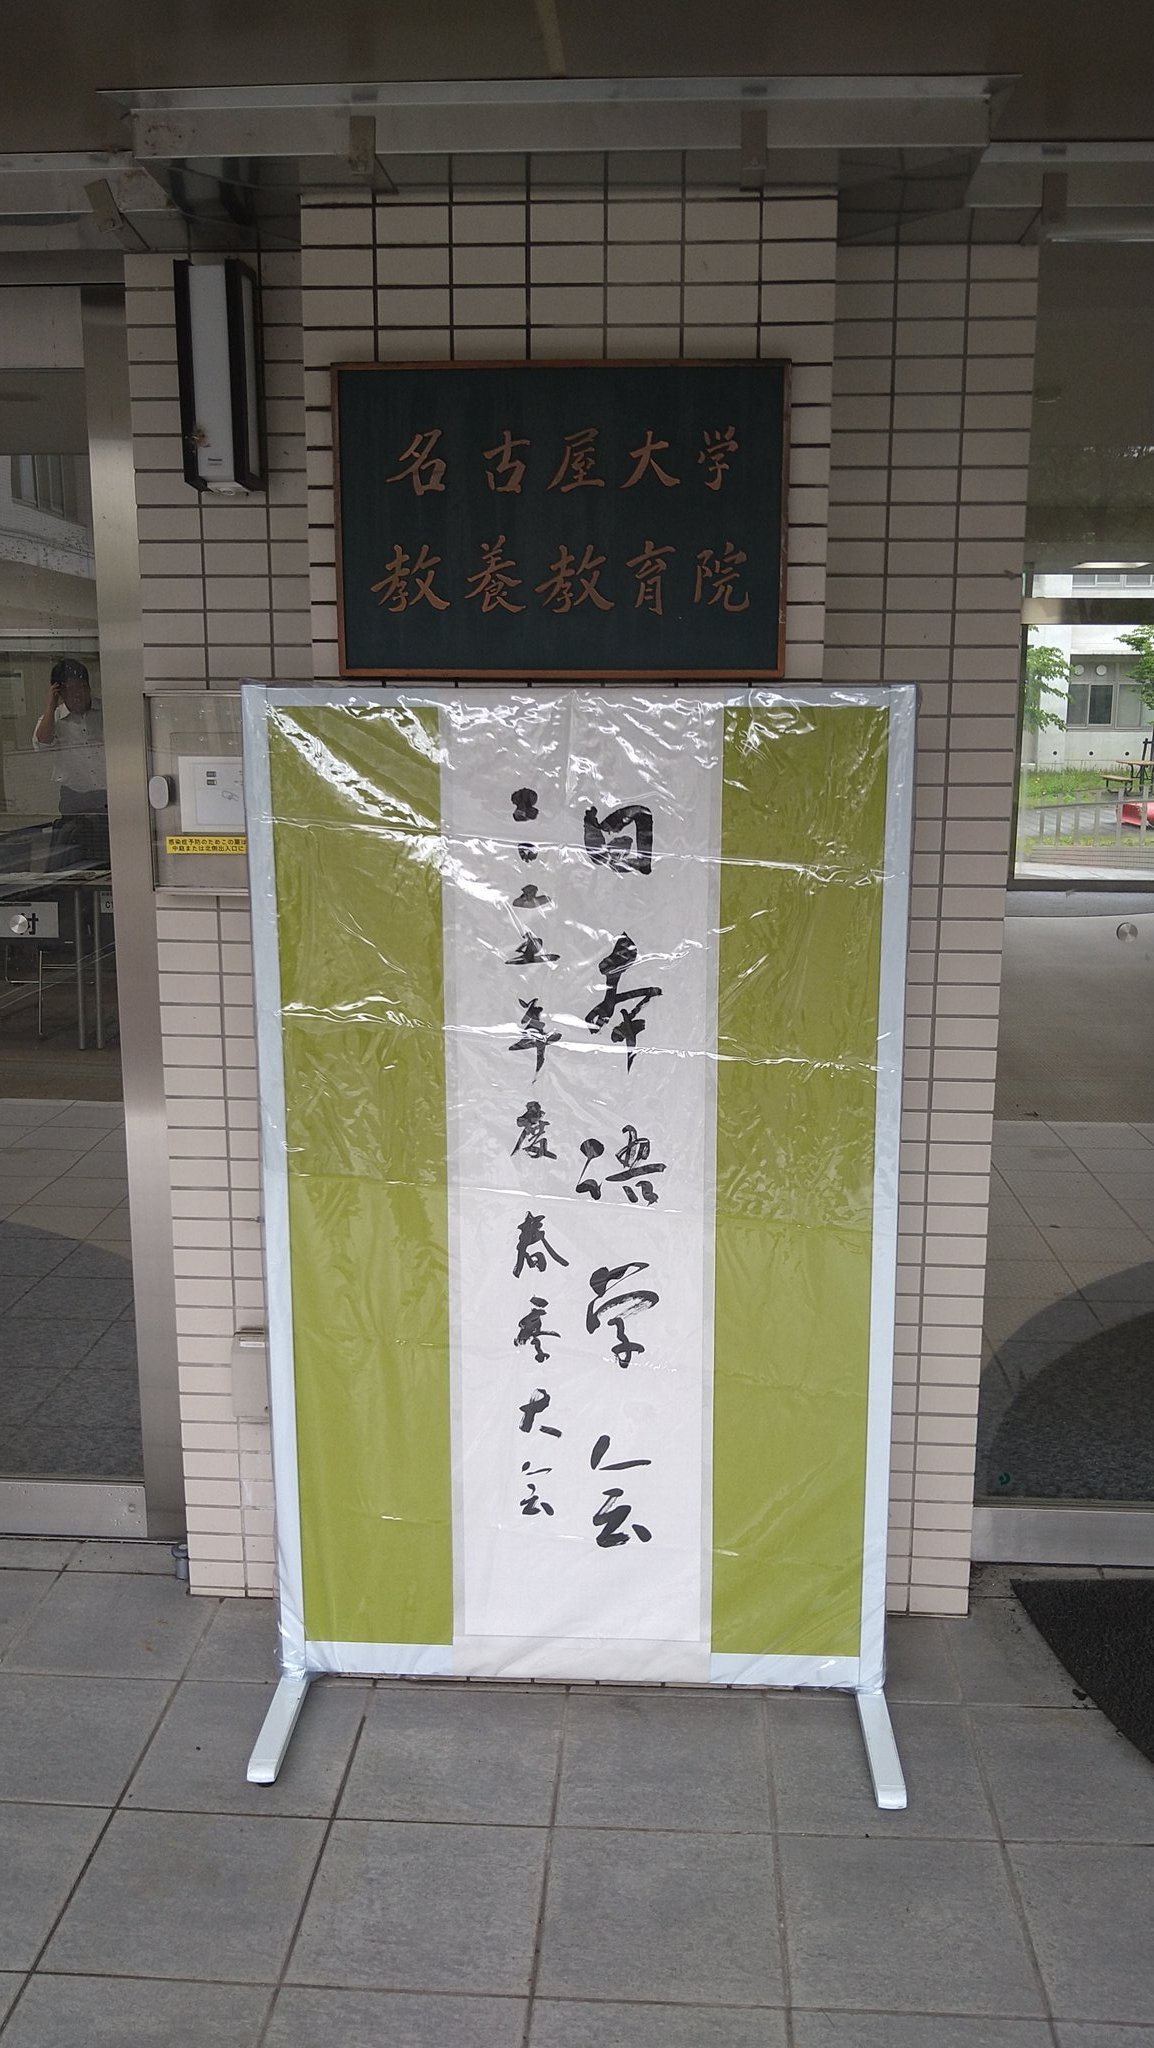 名古屋大学
教養教育院
日本語学会
二〇二五年度春季大会
感染症予防のためこの扉は
中庭または北側出入口に
付